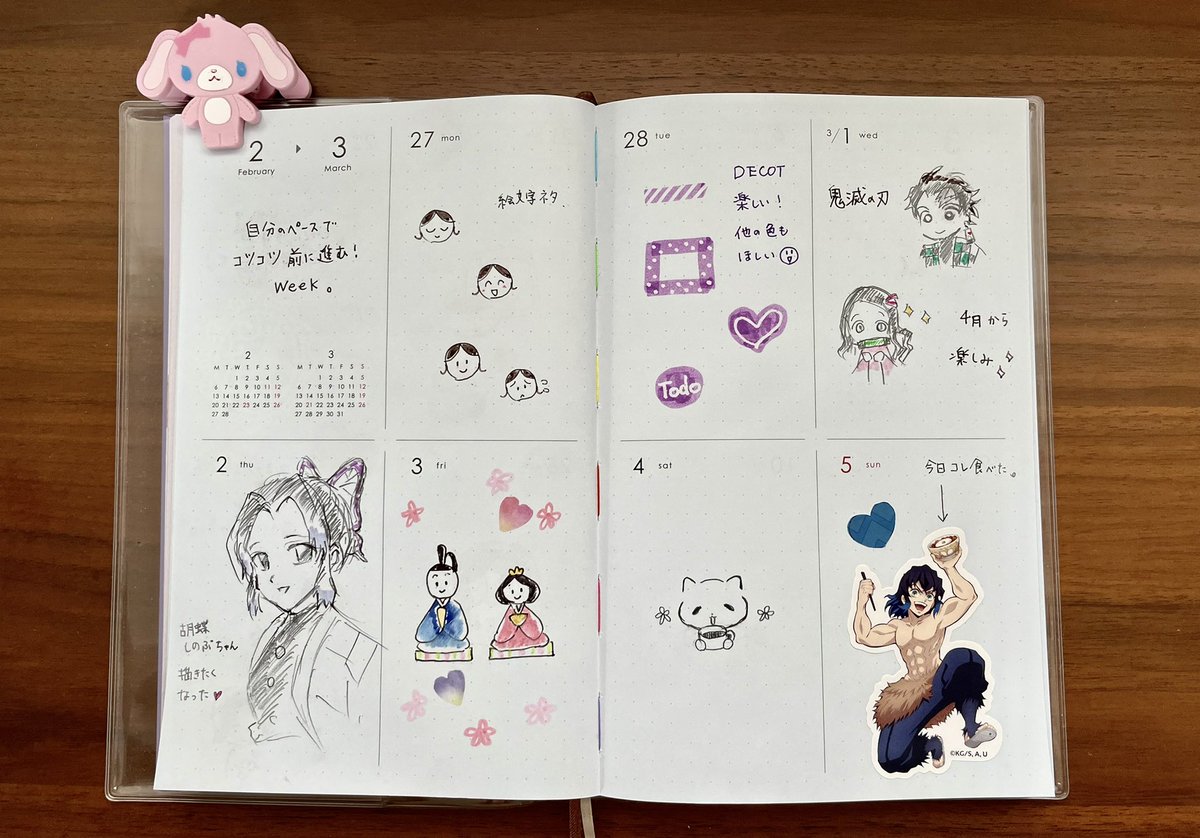 2 ▸ 3
February March
自分のペースで
コツコツ 前に進む!
week。
2
M T W T F S S
1 2 3 4 5
6 7 8 9 10 11 12
13 14 15 16 17 18 19
20 21 22 23 24 25 26
27 28
3
M T W T F S S
1 2 3 4 5
6 7 8 9 10 11 12
13 14 15 16 17 18 19
20 21 22 23 24 25 26
27 28 29 30 31
27 mon
絵文字ネタ、
28 tue
DECOT
楽しい!
他の色も
ほしい
Todo
3/1 wed
鬼滅の刃
4月から
楽しみ
2 thu
胡蝶
しのぶちゃん
描きたく
なった♥
3 fri
4 sat
5 sun
今日コレ食べた。
©KG/S, A, U